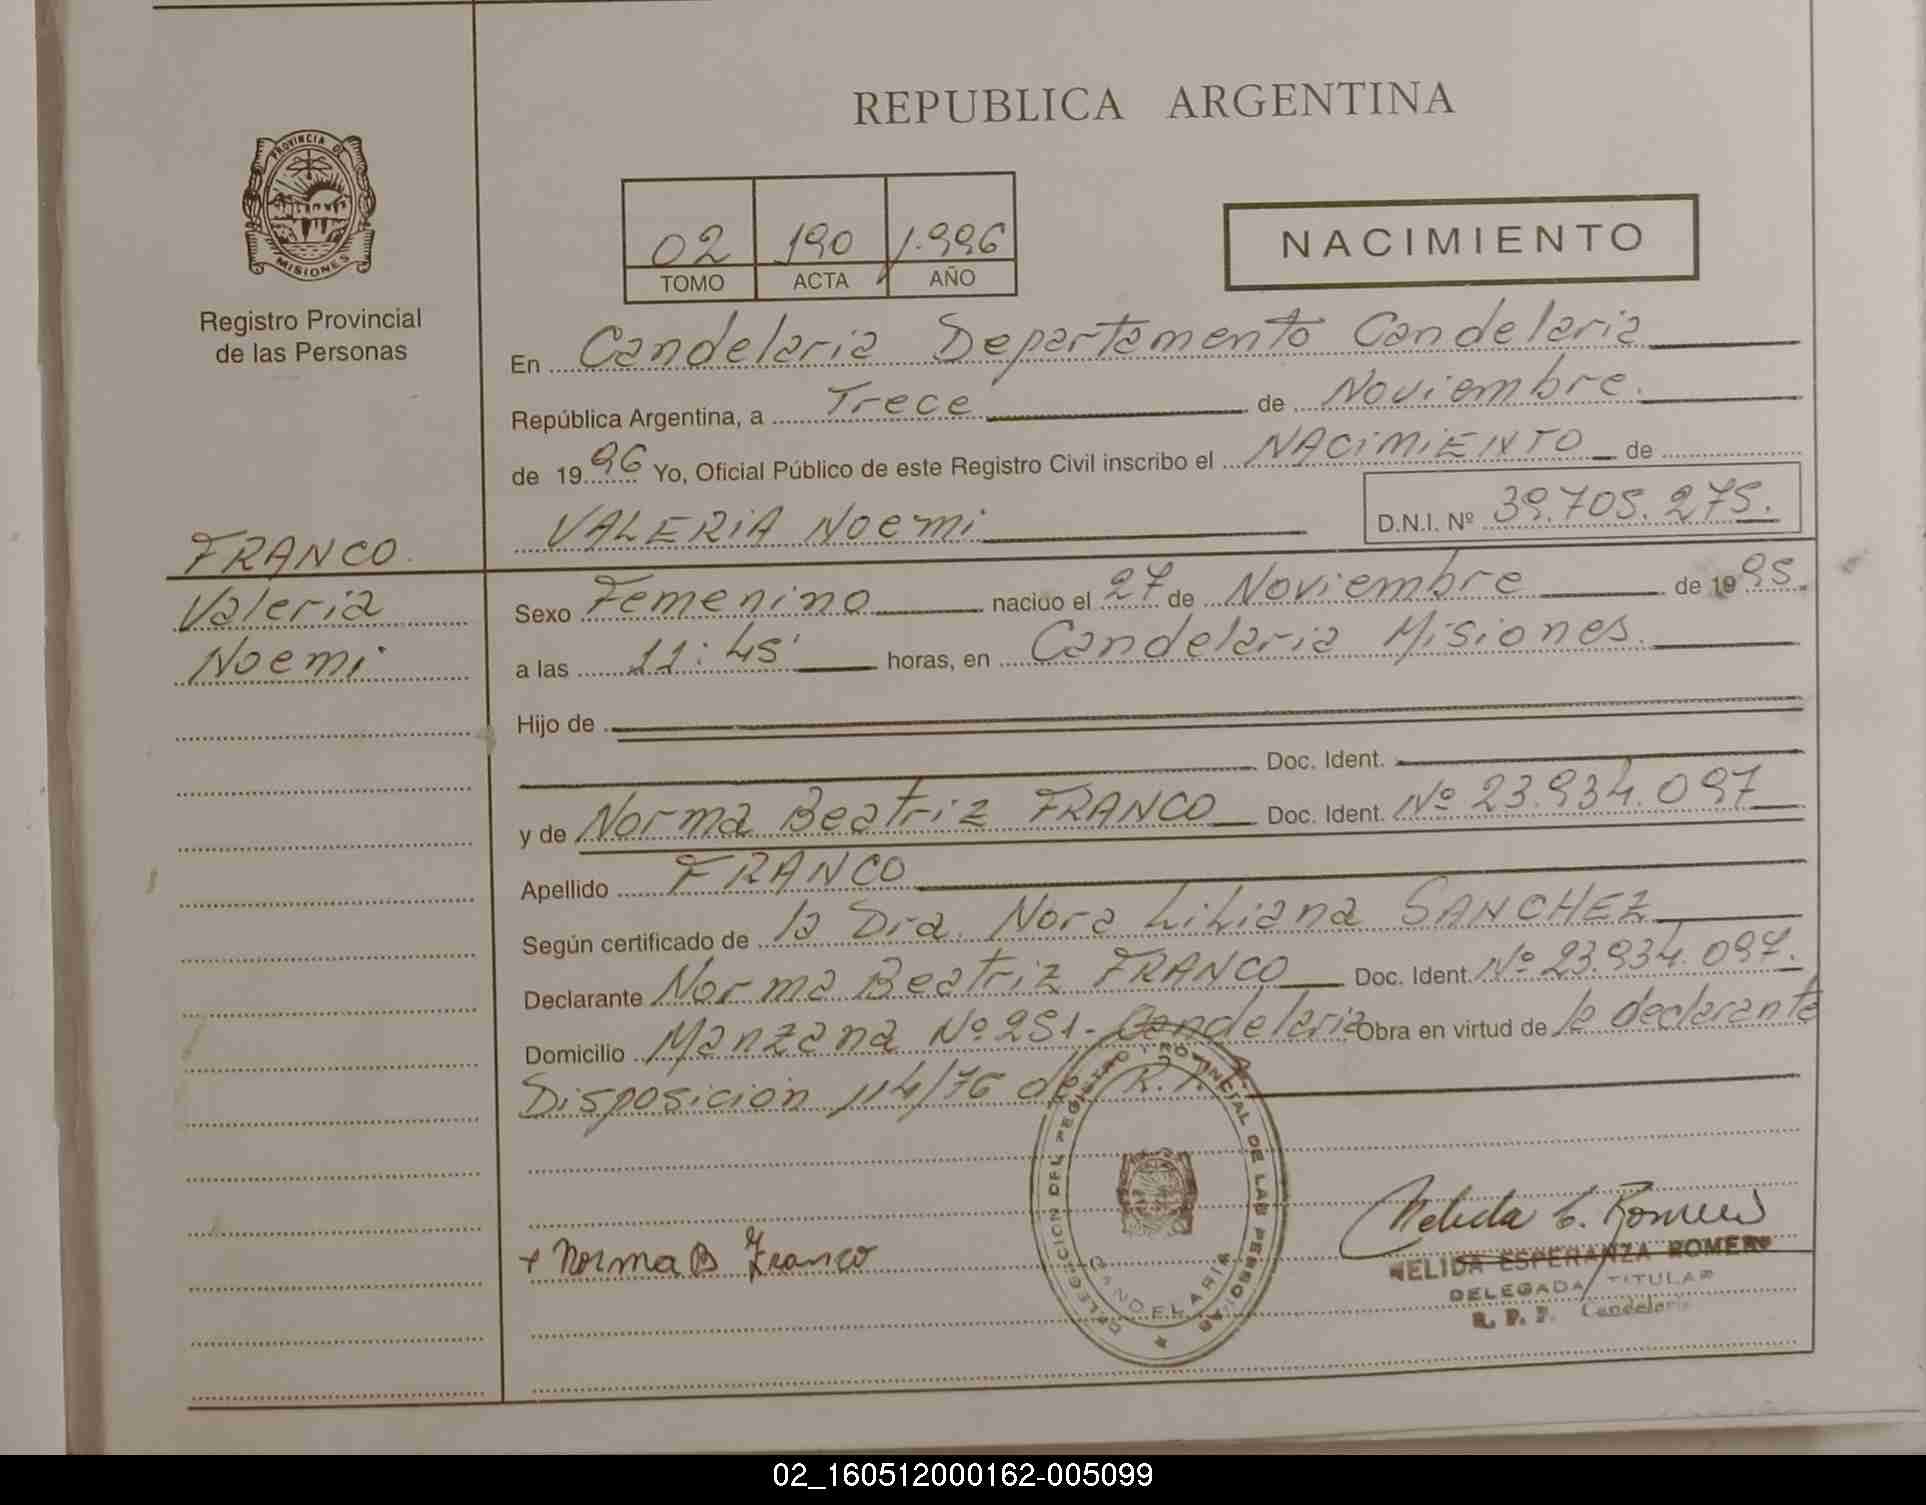 REPUBLICA ARGENTINA
PROVINCIA DE
MISIONES
Registro Provincial
de las Personas
02 190 1.996
TOMO ACTA AÑO
NACIMIENTO
En Candelaria Departamento Candelaria
República Argentina, a Trece de Noviembre.
de 1996 Yo, Oficial Público de este Registro Civil inscribo el NACIMIENTO de
VALERIA Noemi
D.N.I. Nº 39.705.275.
FRANCO.
Valeria
Noemi
Sexo Femenino nacido el 27 de Noviembre de 1995.
a las 11:45' horas, en Candelaria Misiones.
Hijo de
Doc. Ident.
y de Norma Beatriz FRANCO Doc. Ident. Nº 23.934.097
Apellido FRANCO
Según certificado de la Dra. Nora Liliana SANCHEZ
Declarante Norma Beatriz FRANCO Doc. Ident. Nº 23.934.097.
Domicilio Manzana Nº 251- Candelaria Obra en virtud de la declarante
Disposición 114/76 del R.P.P.
DELEGACION DEL REGISTRO PROVINCIAL DE LAS PERSONAS
CANDELARIA
+ Norma B Franco
Nelida E. Romero
NELIDA ESPERANZA ROMERO
DELEGADA TITULAR
R. P. P. Candelaria
02_160512000162-005099